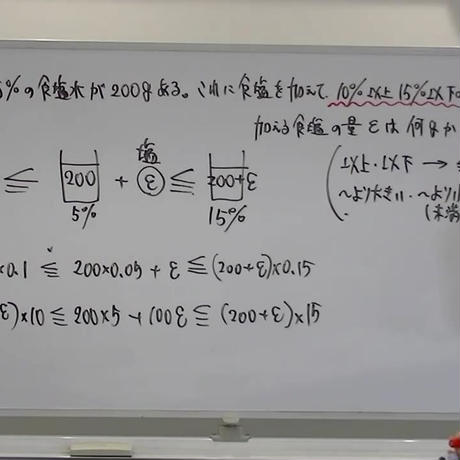 5%の食塩水が200gある。これに食塩を加えて、10%以上15%以下の
加える食塩の量εは何gか
塩
≦ 200 + ε ≦ 200+ε
5% 15%
以上・以下 →
〜より大きい・〜より小
(未満
×0.1 ≦ 200×0.05 + ε ≦ (200+ε)×0.15
ε)×10 ≦ 200×5 + 100ε ≦ (200+ε)×15